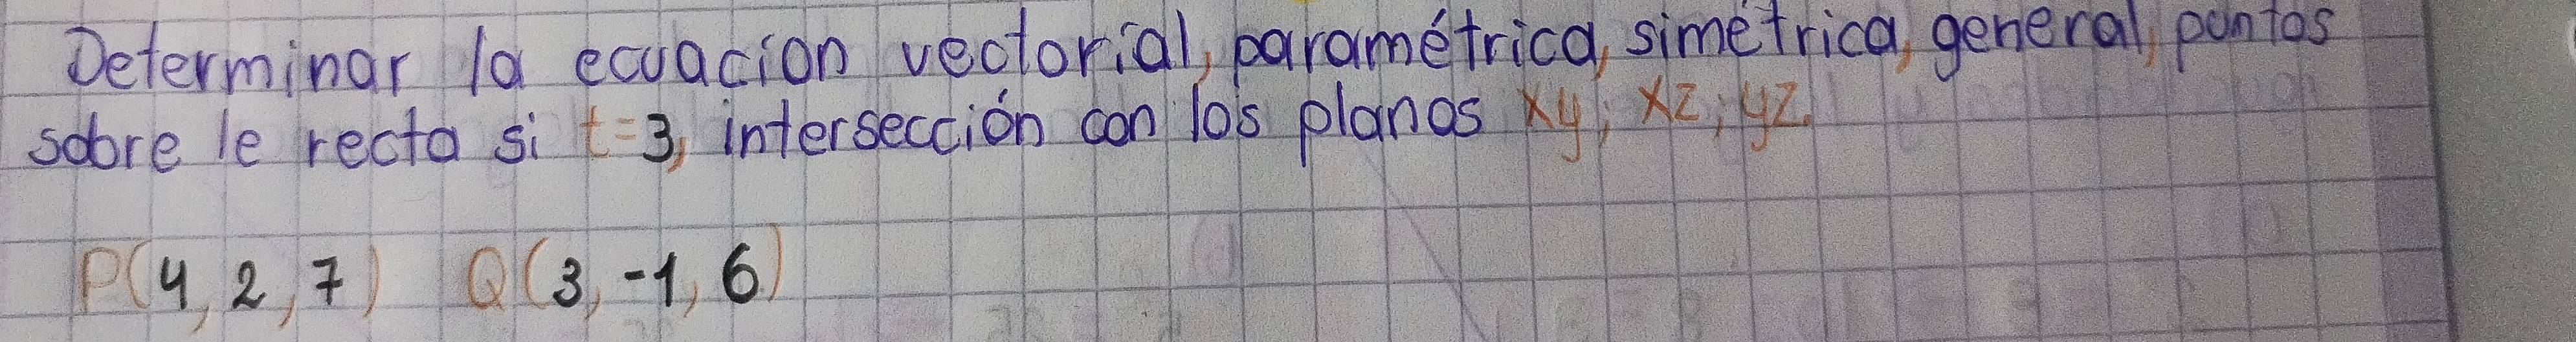 Determinar la ecuacion vectorial, paramétrica, simétrica, general, pontos
sobre le recta si t=3, intersección con los planos xy; xz; yz.
P(4, 2, 7) Q(3, -1, 6)